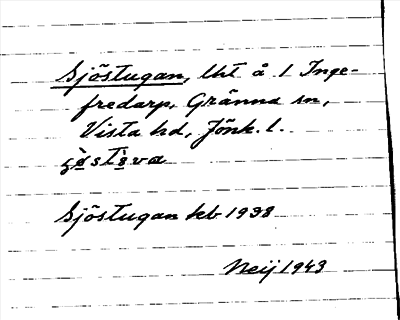 Sjöstugan, lht å 1 Inge-
fredarp, Gränna sn,
Vista hd, Jönk. l.
Sjöstugan kb 1938
Neij 1943